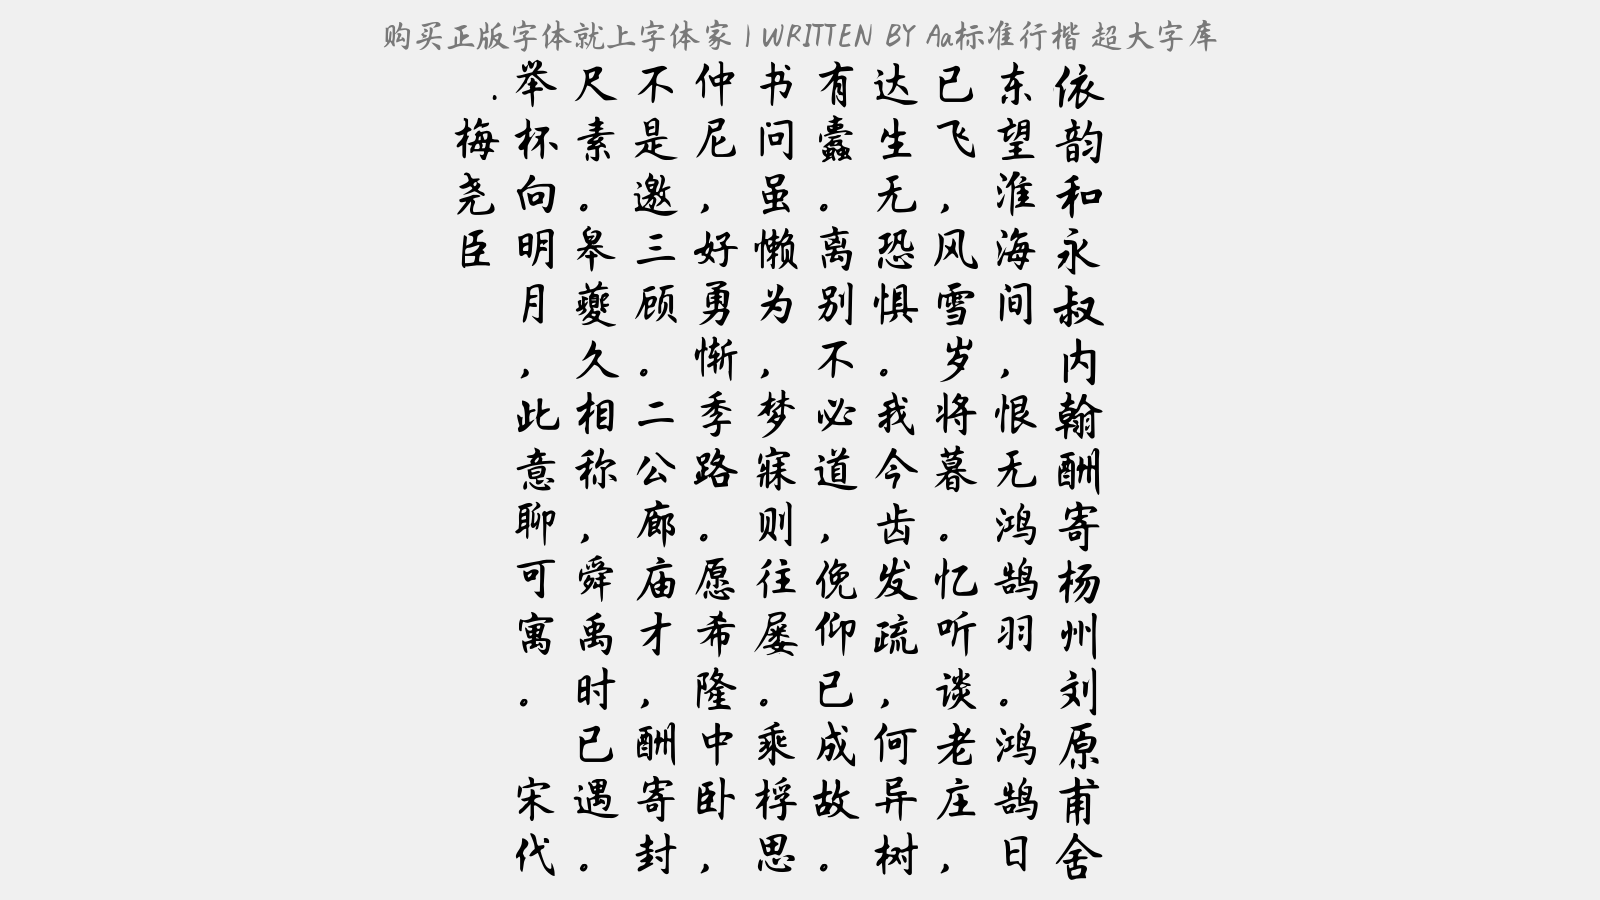 购买正版字体就上字体家 | WRITTEN BY Aa标准行楷 超大字库
依韵和永叔内翰酬寄杨州刘原甫舍
东望淮海间，恨无鸿鹄羽。鸿鹄日
已飞，风雪岁将暮。忆听谈老庄，
达生无恐惧。我今齿发疏，何异树
有蠹。离别不必道，俛仰已成故。
书问虽懒为，梦寐则往屡。乘桴思
仲尼，好勇惭季路。愿希隆中卧，
不是邀三顾。二公廊庙才，酬寄封
尺素。皋夔久相称，舜禹时已遇。
举杯向明月，此意聊可寓。 宋代
.梅尧臣